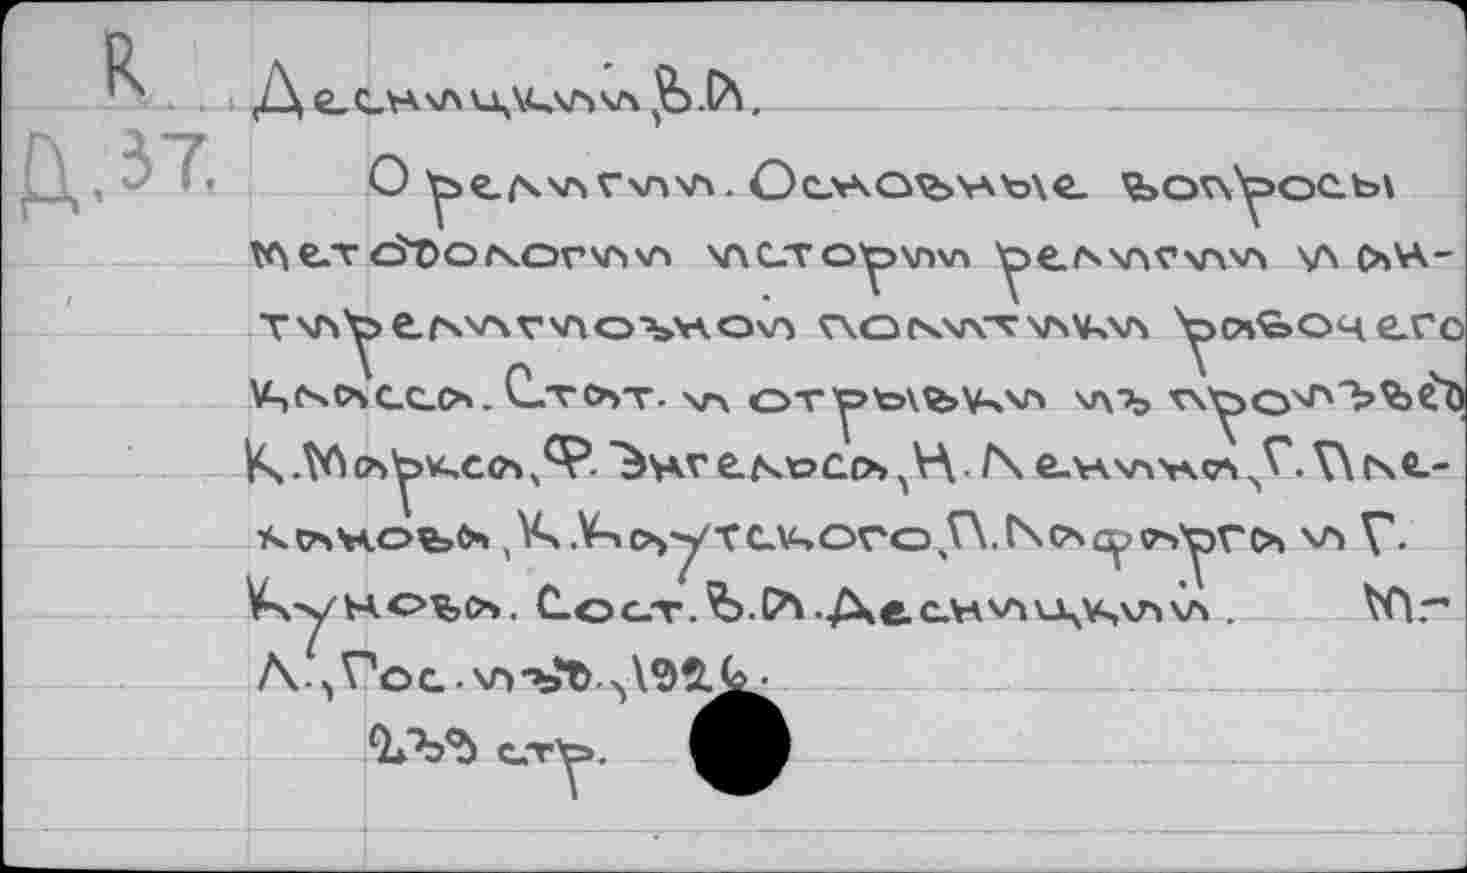 R
Д.37.
Десницкий, В.А.
О религии. Основные вопросы
методологии истории религии и ан-
тирелигиозной политики рабочего
класса. Стат. и отрывки из произвед.
К.Маркса, Ф.Энгельса, Н.Ленина, Г.Пле-
ханова, К.Каутского, П.Лафарга и Г.
Кунова. Сост. В.А.Десницкий. М.-
Л., Гос. изд., 1926.
233 стр.